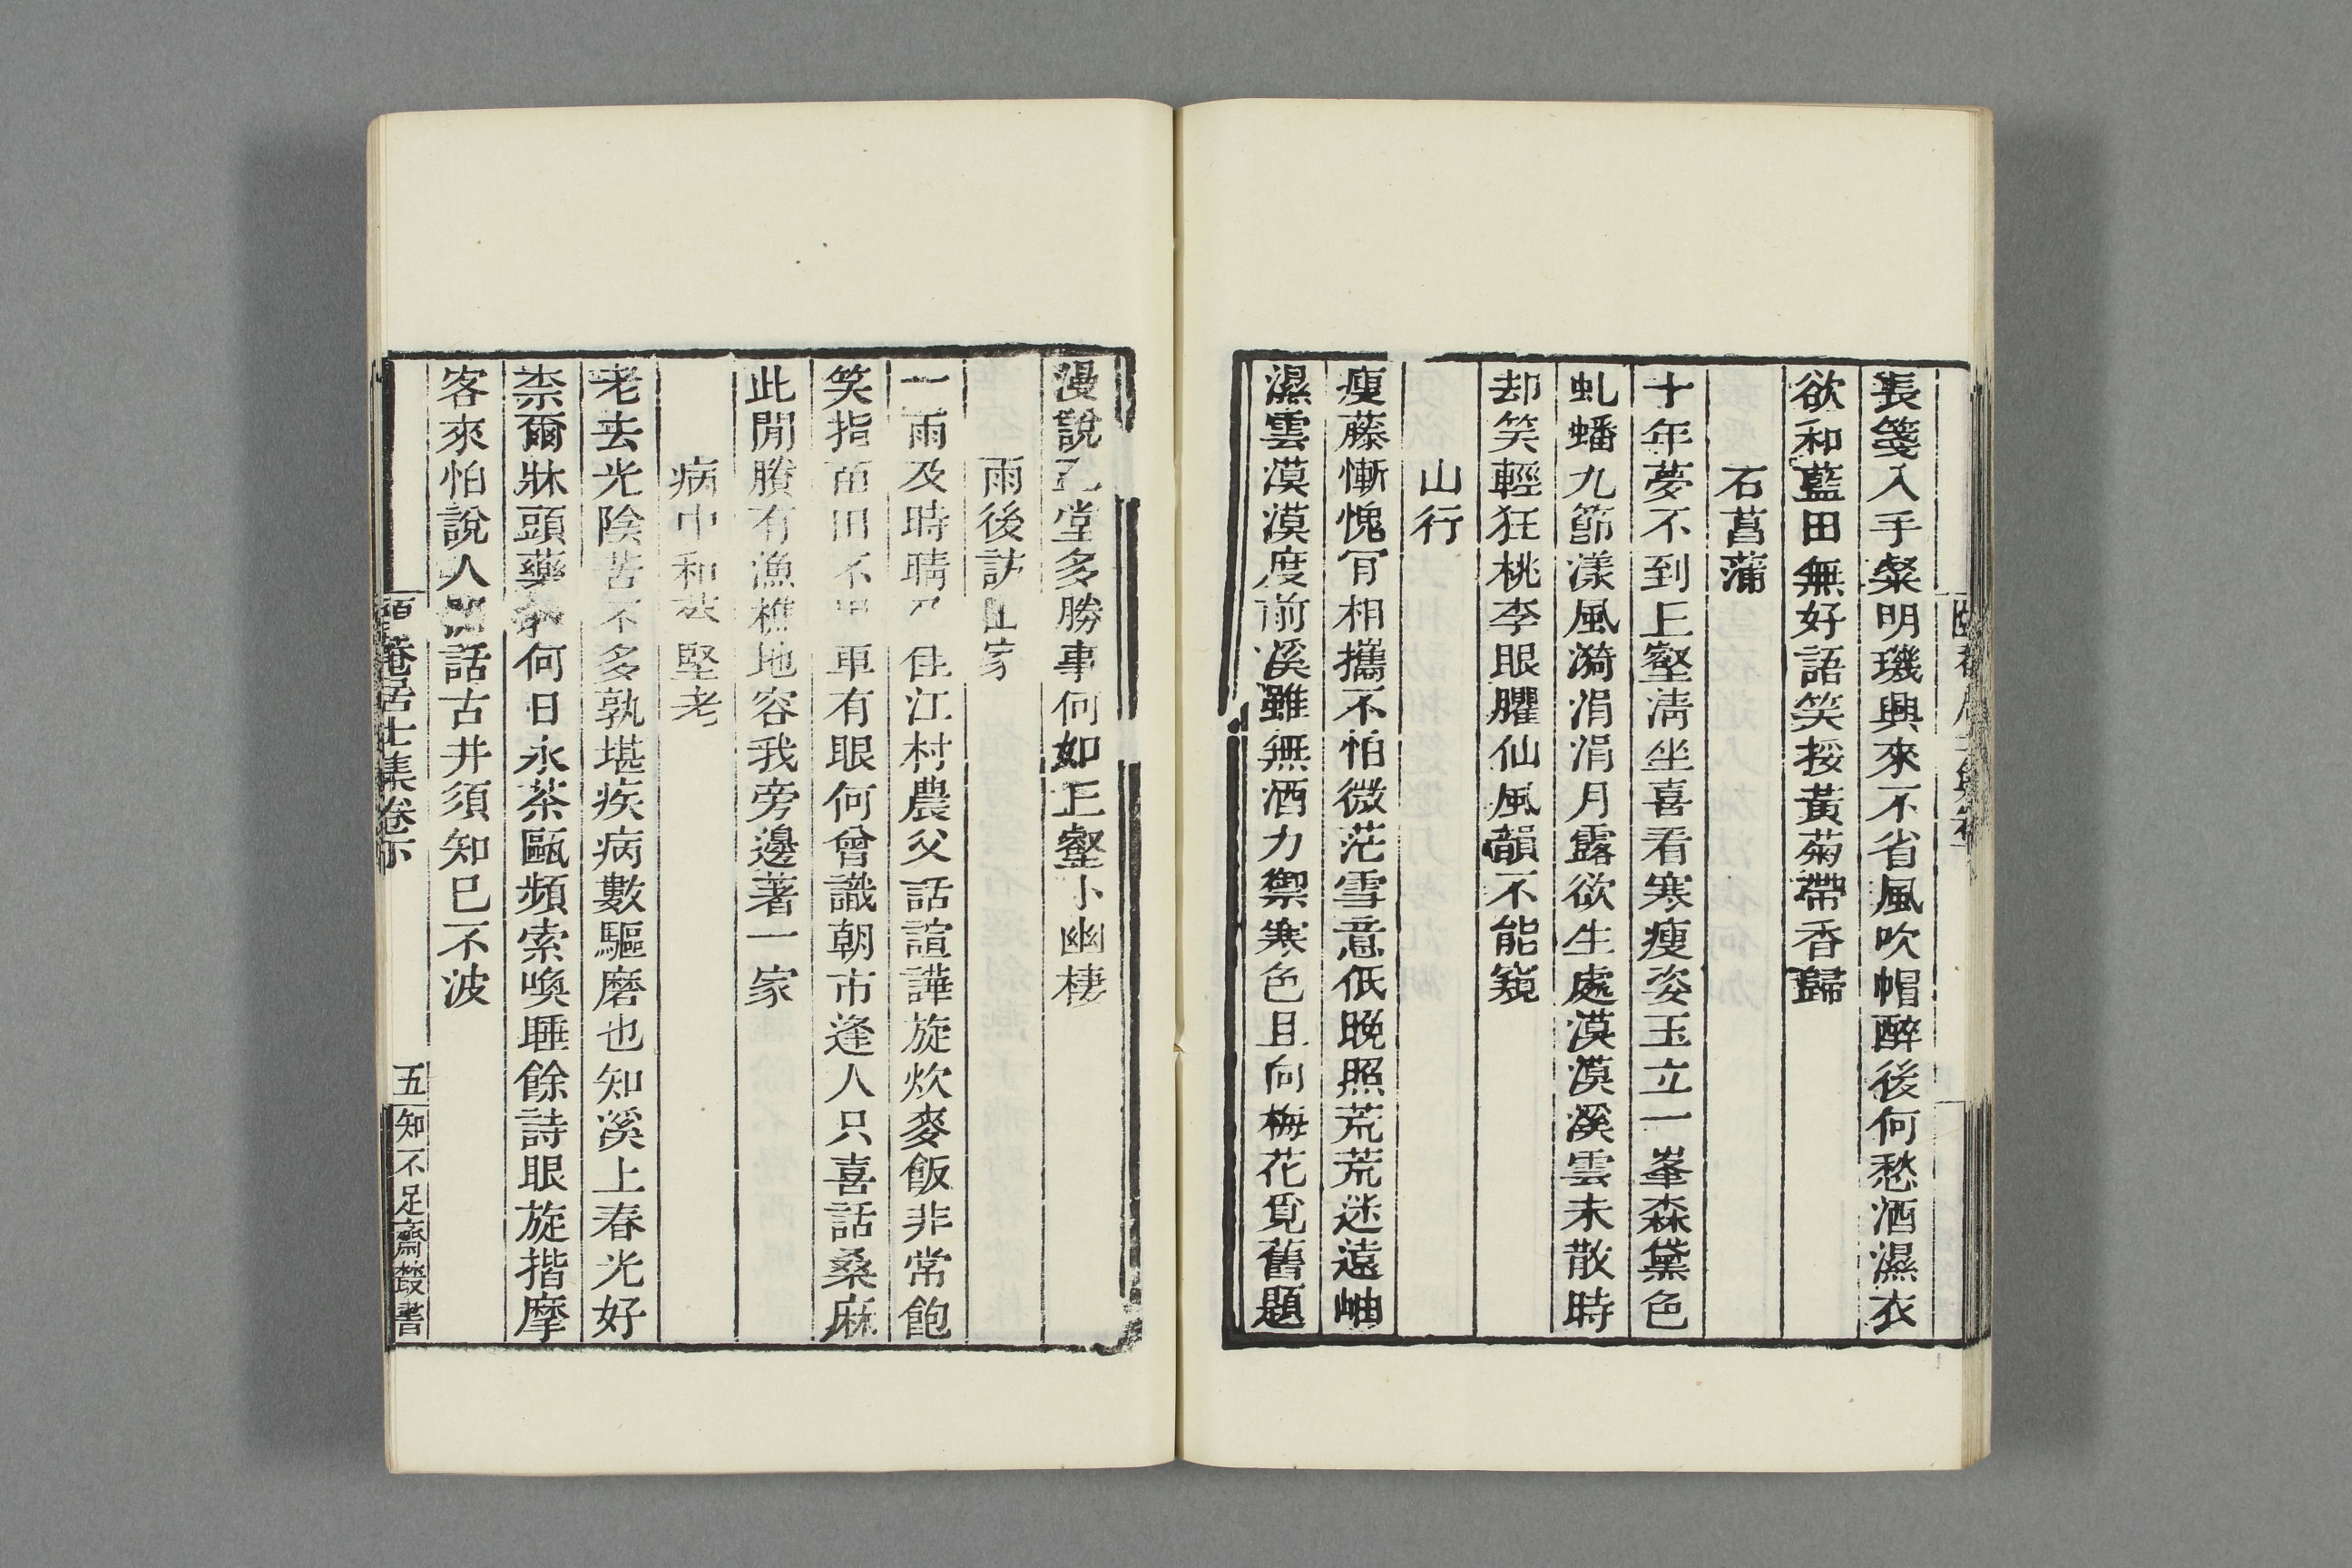 長箋入手粲明璣興來不省風吹帽醉後何愁酒濕衣
欲和藍田無好語笑挼黃菊帶香歸
石菖蒲
十年夢不到上壑淸坐喜看寒瘦姿玉立一峯森黛色
虬蟠九節漾風漪涓涓月露欲生處漠漠溪雲未散時
却笑輕狂桃李眼臞仙風韻不能窺
山行
瘦藤慚愧肎相攜不怕微茫雪意低晚照荒荒迷遠岫
濕雲漠漠度前溪雖無酒力禦寒色且向梅花覓舊題
漫說 堂多勝事何如正壑小幽棲
雨後訪山家
一雨及時晴 佳江村農父話諠譁旋炊麥飯非常飽
笑指苗田不 車有眼何曾識朝市逢人只喜話桑麻
此閒賸有漁樵地容我旁邊著一家
病中和 堅老
老去光陰苦不多孰堪疾病數驅磨也知溪上春光好
柰爾牀頭藥 何日永茶甌頻索喚睡餘詩眼旋揩摩
客來怕說人閒話古井須知已不波
菴居士集卷下
五
知不足齋叢書